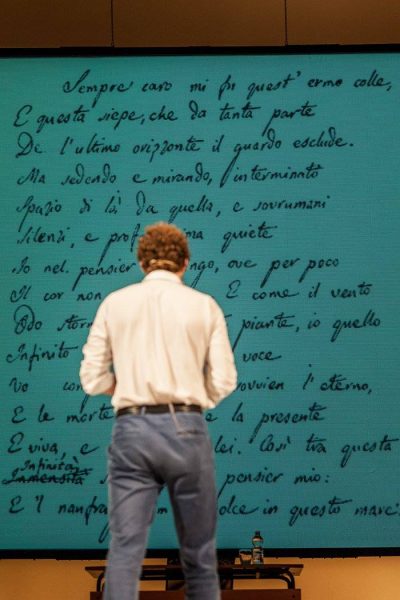 Sempre caro mi fu quest' ermo colle,
E questa siepe, che da tanta parte
De l'ultimo orizzonte il guardo esclude.
Ma sedendo e mirando, interminato
Spazio di là da quella, e sovrumani
Silenzi, e prof ima quiete
Io nel pensier ngo, ove per poco
Il cor non E come il vento
Odo storm piante, io quello
Infinito voce
Vo com ovvien l'eterno,
E le morte e la presente
E viva, e lei. Così tra questa
Infinità
Immensità pensier mio:
E 'l naufra dolce in questo mare